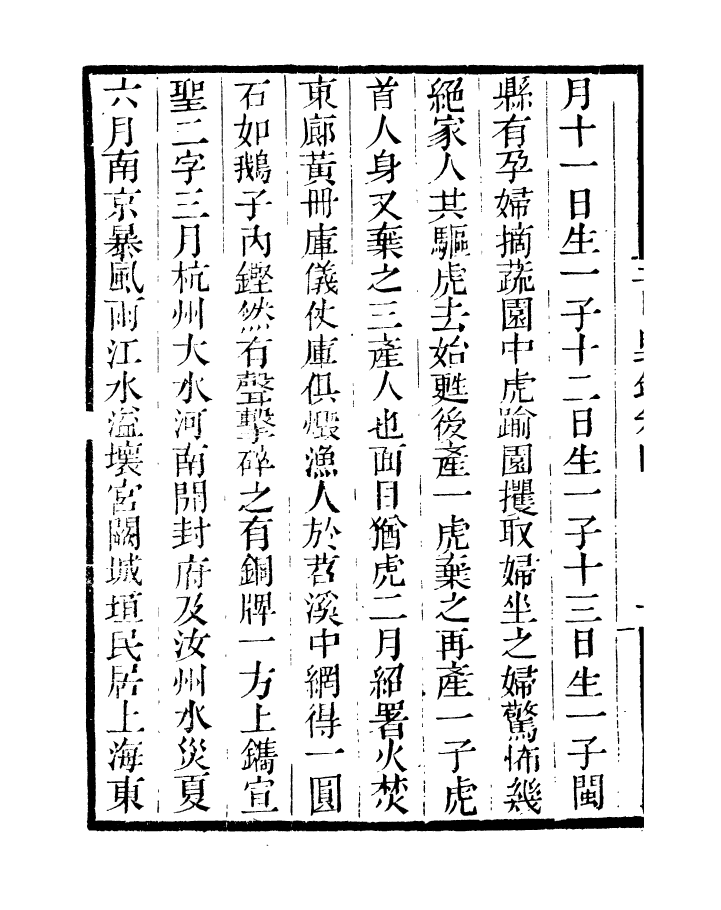 月十一日生一子十二日生一子十三日生一子閩
縣有孕婦摘蔬園中虎踰園攫取婦坐之婦驚怖幾
絕家人共驅虎去始甦後產一虎棄之再產一子虎
首人身又棄之三產人也面目猶虎二月紹署火焚
東廊黃冊庫儀仗庫俱燬漁人於苕溪中網得一圓
石如鵝子內鏗然有聲擊碎之有銅牌一方上鐫宣
聖二字三月杭州大水河南開封府及汝州水災夏
六月南京暴風雨江水溢壞宮闕城垣民居上海東